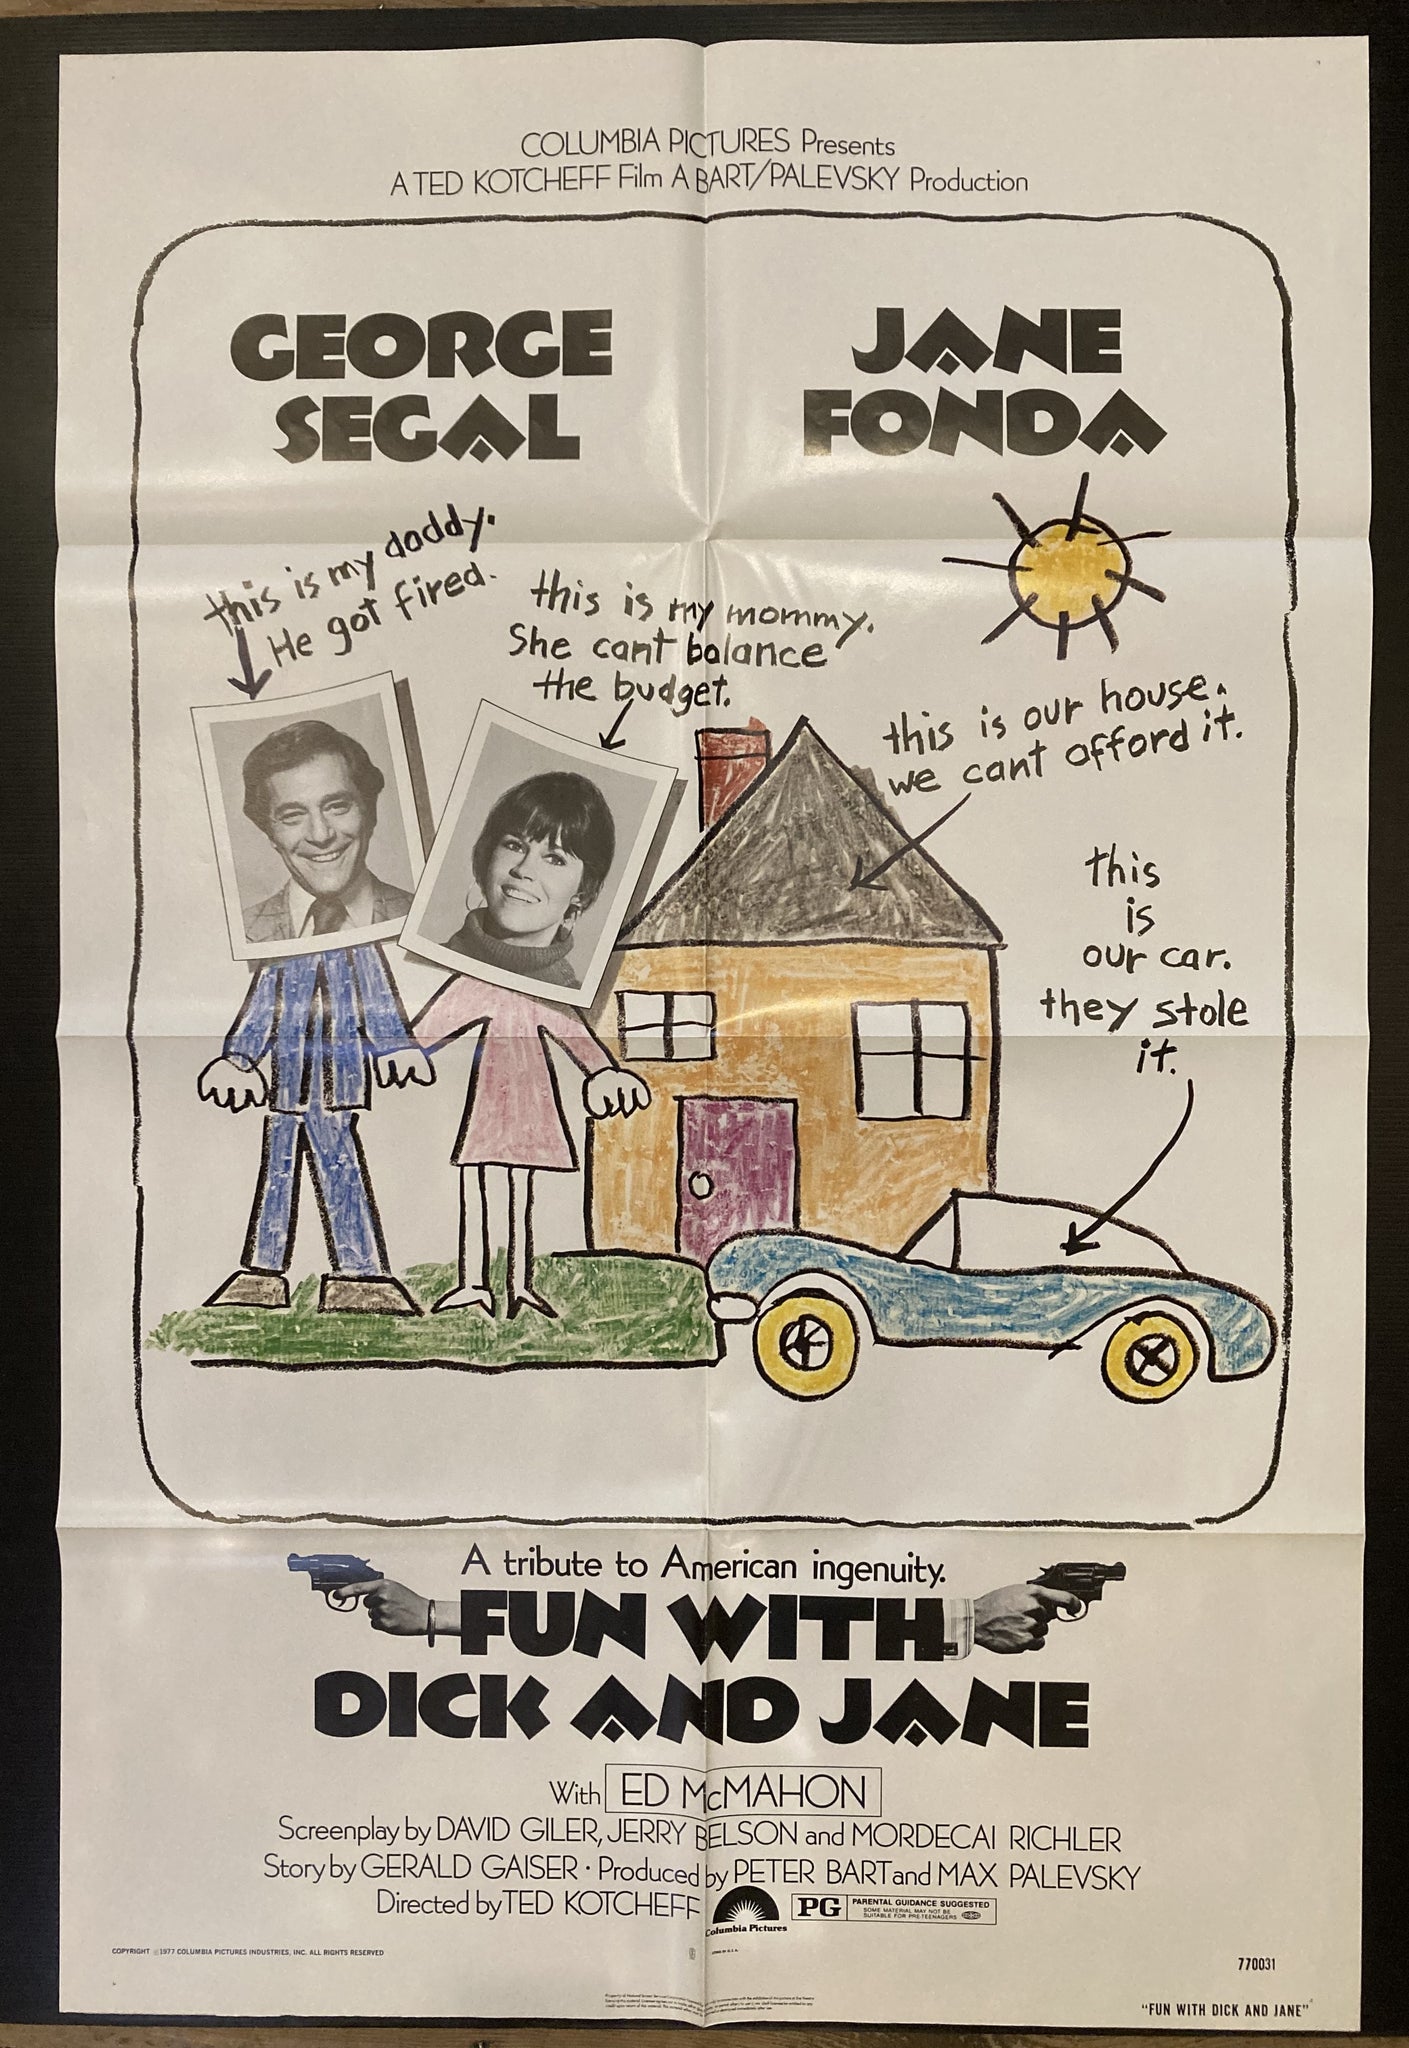 COLUMBIA PICTURES Presents
A TED KOTCHEFF Film A BART/PALEVSKY Production
GEORGE
SEGAL
JANE
FONDA
this is my daddy.
He got fired.
this is my mommy.
She cant balance
the budget.
this is our house.
we cant afford it.
this
is
our car.
they stole
it.
A tribute to American ingenuity.
FUN WITH
DICK AND JANE
With ED McMAHON
Screenplay by DAVID GILER, JERRY BELSON and MORDECAI RICHLER
Story by GERALD GAISER · Produced by PETER BART and MAX PALEVSKY
Directed by TED KOTCHEFF
Columbia Pictures
PG PARENTAL GUIDANCE SUGGESTED
SOME MATERIAL MAY NOT BE
SUITABLE FOR PRE-TEENAGERS
COPYRIGHT ©1977 COLUMBIA PICTURES INDUSTRIES, INC. ALL RIGHTS RESERVED
770031
"FUN WITH DICK AND JANE"